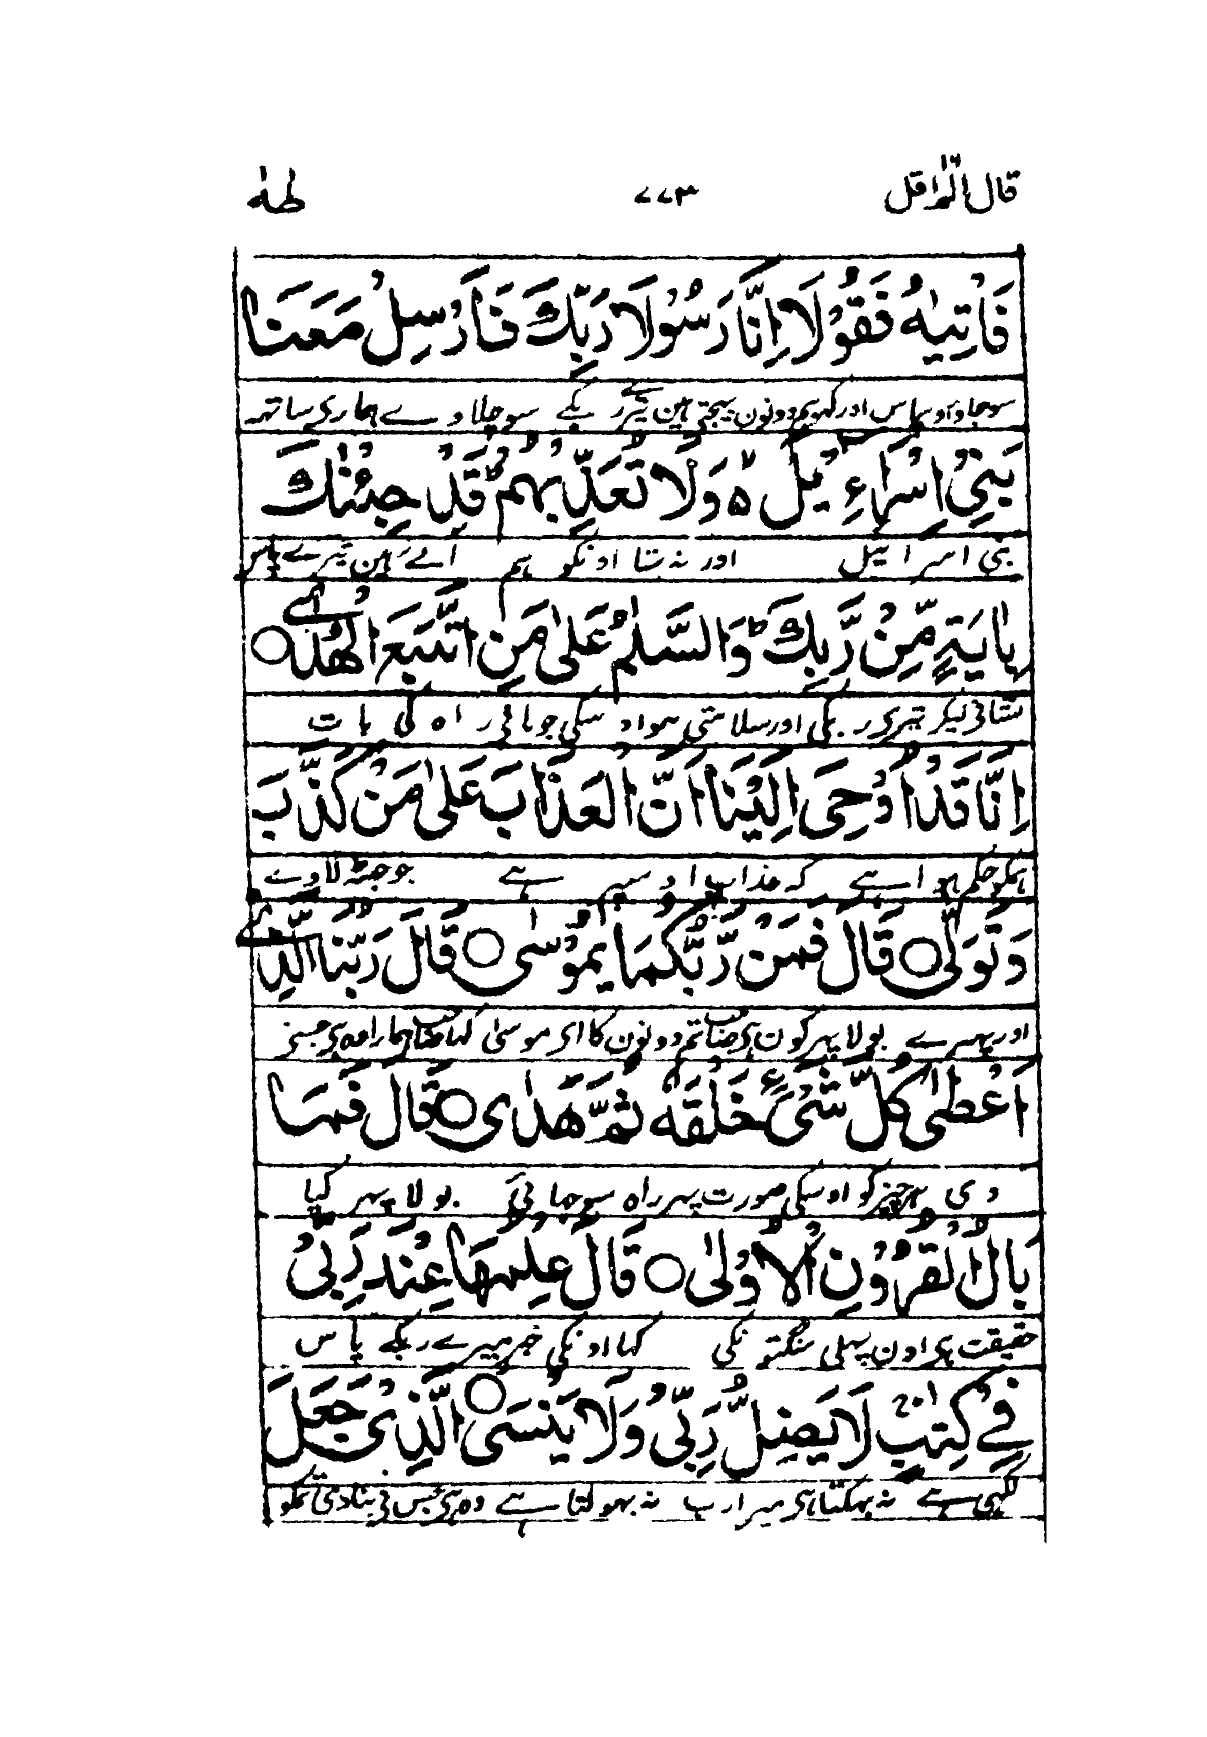 قال الم اقل ۱۶ ۷۷۳ طٰهٰ
فَاْتِيٰهُ فَقُوْلَا اِنَّا رَسُوْلَا رَبِّكَ فَاَرْسِلْ مَعَنَا
سو جاو اوس پاس اور كہو ہم دونون بہیجی ہین تیرے رب كے سو چلا دے ہماری ساتہہ
بَنِيْ اِسْرَآءِيْلَ ەۙ وَلَا تُعَذِّبْهُمْ ؕ قَدْ جِئْنٰكَ
بنی اسرائیل اور نہ ستا اونكو ہم آئے ہین تیرے پاس
بِاٰيَةٍ مِّنْ رَّبِّكَ ؕ وَالسَّلٰمُ عَلٰى مَنِ اتَّبَعَ الْهُدٰى ○
نشانی لیكر تیری رب كی اور سلامتی ہو اوسكی جو مانی راہ كی بات
اِنَّا قَدْ اُوْحِيَ اِلَيْنَا اَنَّ الْعَذَابَ عَلٰى مَنْ كَذَّبَ
ہمكو حكم ہوا ہے كہ عذاب اوسپر ہے جو جہٹلاوے
وَتَوَلّٰى ○ قَالَ فَمَنْ رَّبُّكُمَا يٰمُوْسٰى ○ قَالَ رَبُّنَا الَّذِيْ
اور پہرے بولا پہر كون ہی صاحب تم دونون كا ای موسیٰ كہا صاحب ہمارا وہ ہی جسنے
اَعْطٰى كُلَّ شَيْءٍ خَلْقَهٗ ثُمَّ هَدٰى ○ قَالَ فَمَا
دی ہر چیز كو اوسكی صورت پہر راہ سوجہائی بولا پہر كیا
بَالُ الْقُرُوْنِ الْاُوْلٰى ○ قَالَ عِلْمُهَا عِنْدَ رَبِّيْ
حقیقت ہی اون پہلی سنگتونكی كہا اونكی خبر میرے رب كے پاس
فِيْ كِتٰبٍ ۚ لَا يَضِلُّ رَبِّيْ وَلَا يَنْسَى ○ الَّذِيْ جَعَلَ
لكہی ہے نہ بہكتا ہی میرا رب نہ بہولتا ہے وہ ہی جس نی بنا دی تمكو